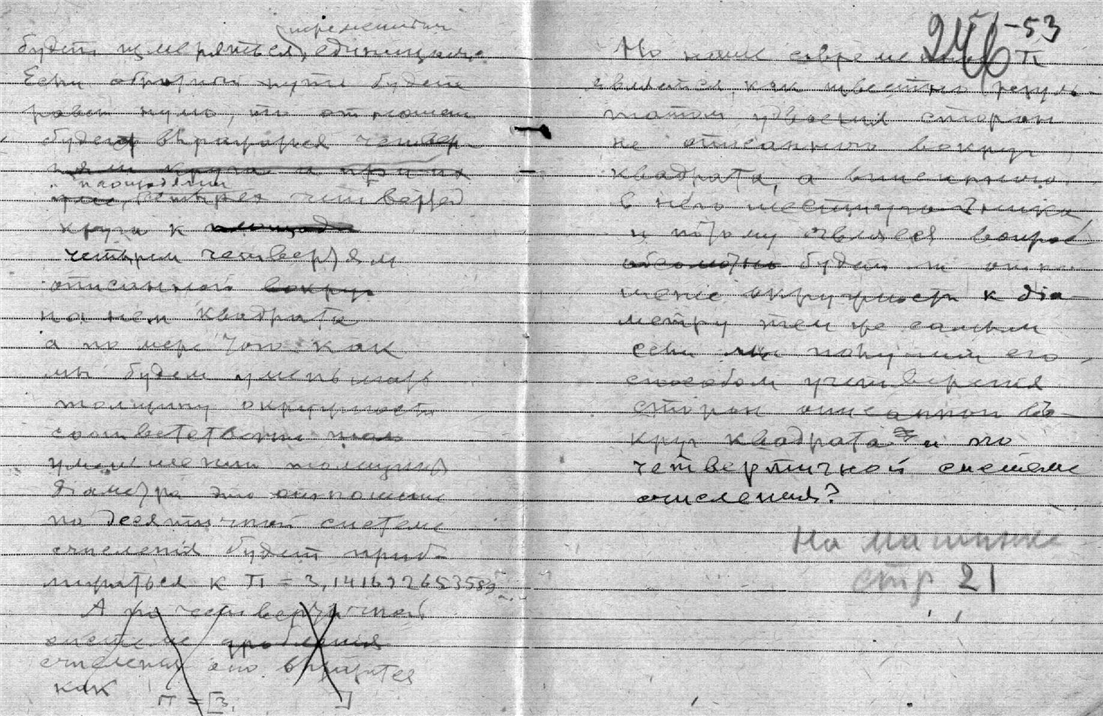 переменится
будет измеряться, единицами.
Если обратный путь будет
равен нулю, то отношен
будет выражаться четвер
круга и
площадями
четырех четвертей
круга к площади
четырем четвертям
описанной вокруг
на нем квадрата
а по мере того как
мы будем уменьшать
толщину окружности
соответственно
уменьшению толщины
діаметра это отношение
по десятичной системе
счисленія будет приб-
лижаться к П = 3,14162265358
А по четверичной
системе дробления
счисления оно выразится
как
π = [3, ]
246 51-53
Но наше современное П
является, как известно резуль-
татом удвоения сторон
не описанного вокруг
квадрата, а вписанного
в него шестиугольника,
и потому является вопрос
будет ли отно
шение окружности к діа
метру тем же самым
если мы получим его
способом учетверения
сторон описанной во-
круг квадрата и по
четвертичной системе
счисления?
На машинке
стр 21